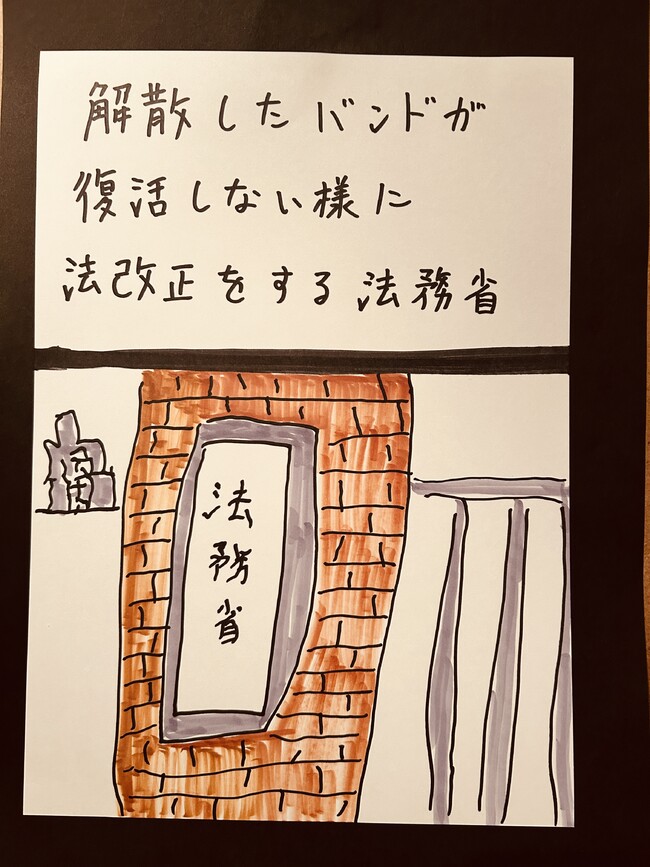 解散したバンドが
復活しない様に
法改正をする法務省
法務省